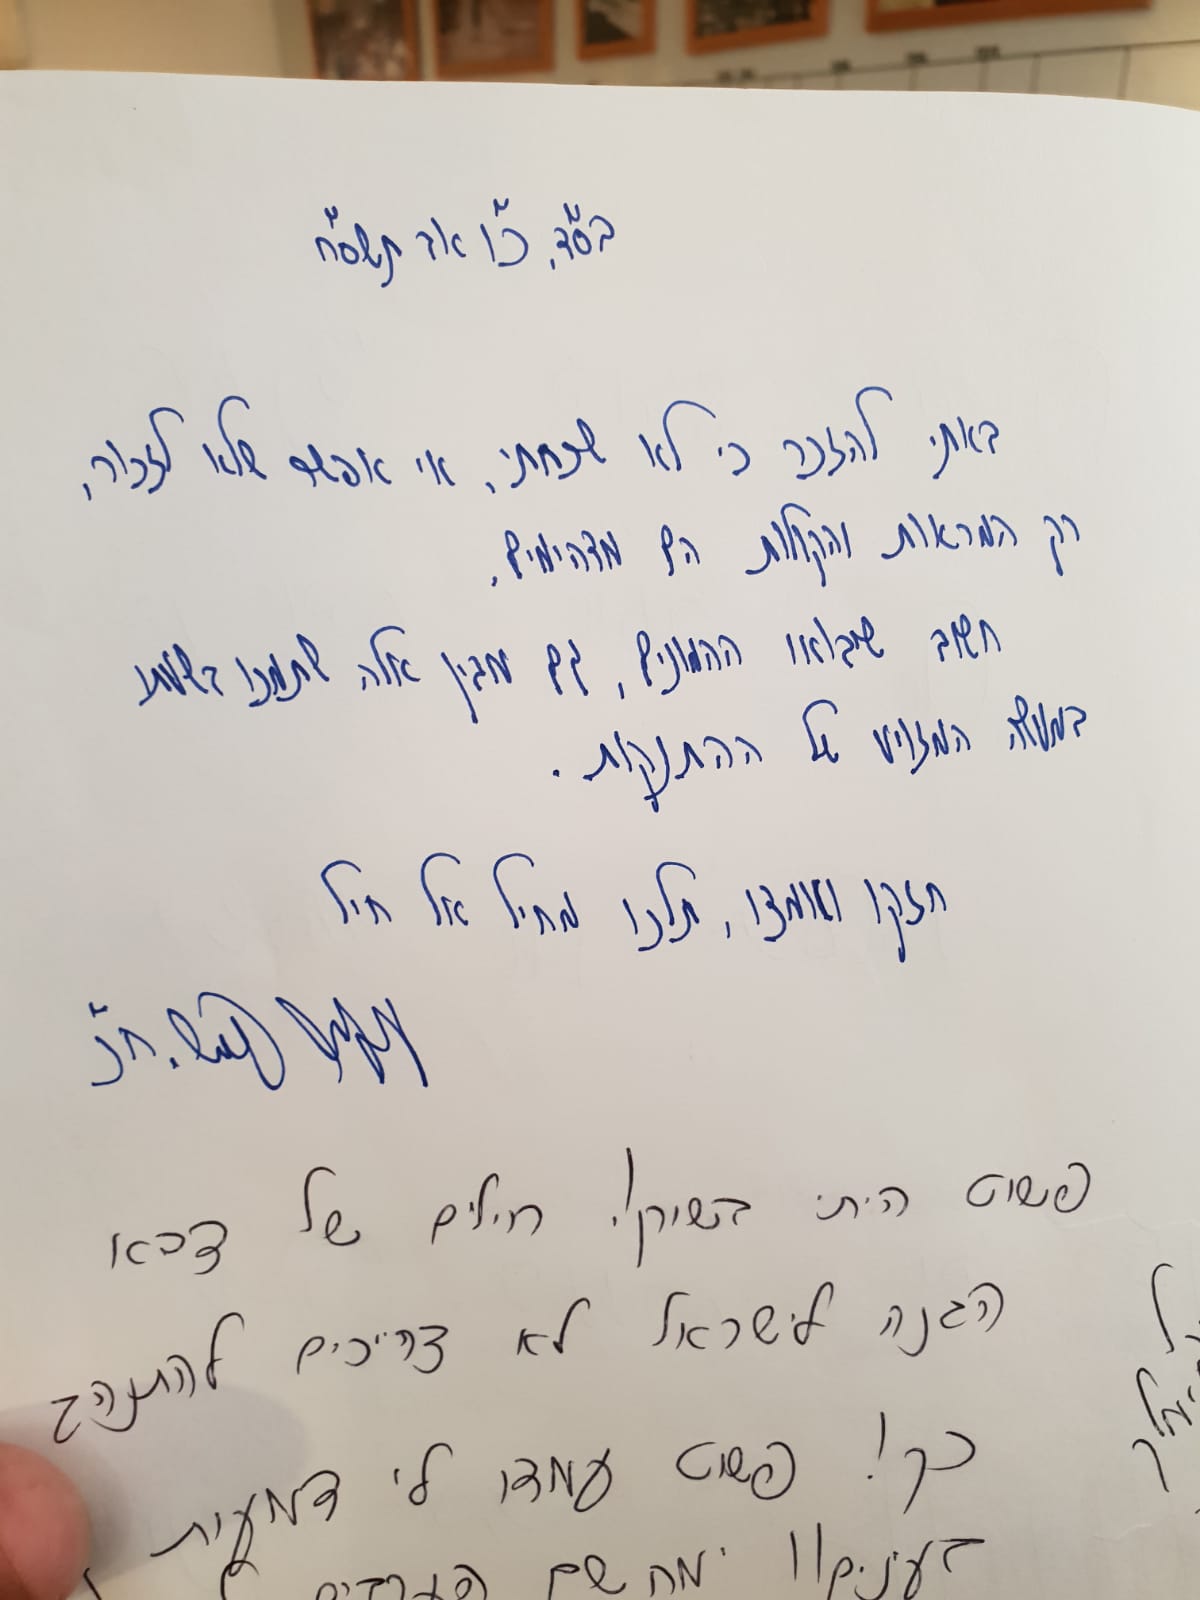 בס"ד, כ"ו אב תשס"ח
באתי להזכר כי לא שכחתי, אי אפשר שלא לזכור,
רק המראות והקולות הם מדהימים.
חשוב שיבואו ההמונים, גם מבין אלה שתמכו בשעתו
במעשה המזויע של ההתנקות.
חזקו ואמצו, תלכו מחיל אל חיל
ח"כ
פשוט הייתי בשוק! חילים של צבא
הגנה לישראל לא צריכים להתנהג
כך! פשוט עמדו לי דמעות
בעינים!! ימח שם